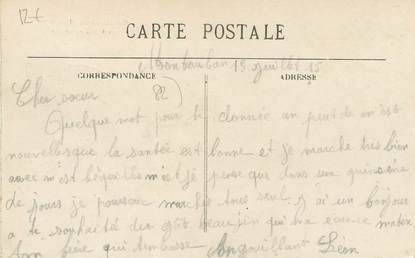 CARTE POSTALE
Montauban 15 juillet 15
CORRESPONDANCE
ADRESSE
82
Cher soeur
Quelque mot pour te donnée un peut de
nouvelles que la santée est bonne et je marche tres bien
avec mes béquilles et je pense que dans une quinsène
de jours je pourrai marcher tous seul. J ai un bonjour
a te souhaité du
ton frère qui t'embrasse Léon